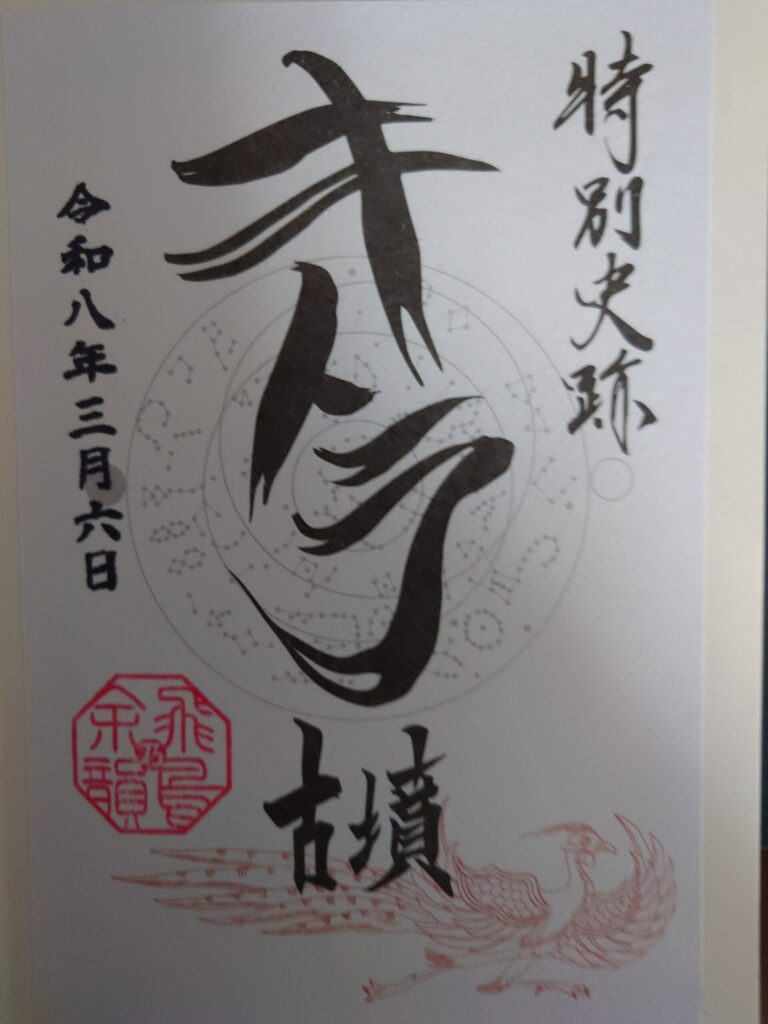 特別史跡
キトラ
古墳
令和八年三月六日
飛鳥
乃
余韻